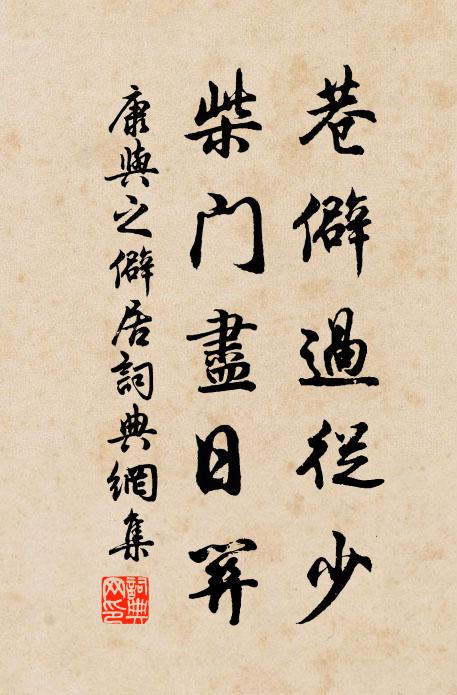 巷僻過從少
柴門盡日
康與之僻居詞典網集
詞典网印